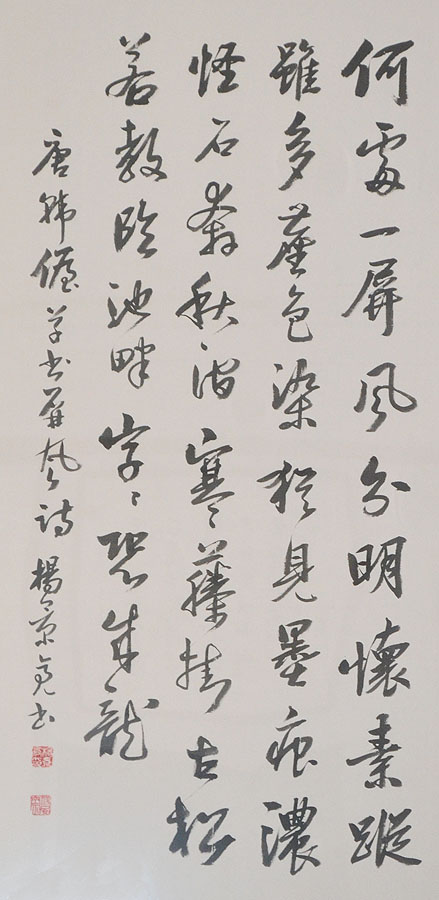 何處一屏風分明懷素蹤
雖多塵色染猶見墨痕濃
怪石奔秋澗寒藤挂古松
若教臨池畔字〻恐成龍
唐韓偓草書屏風詩 楊景亮書